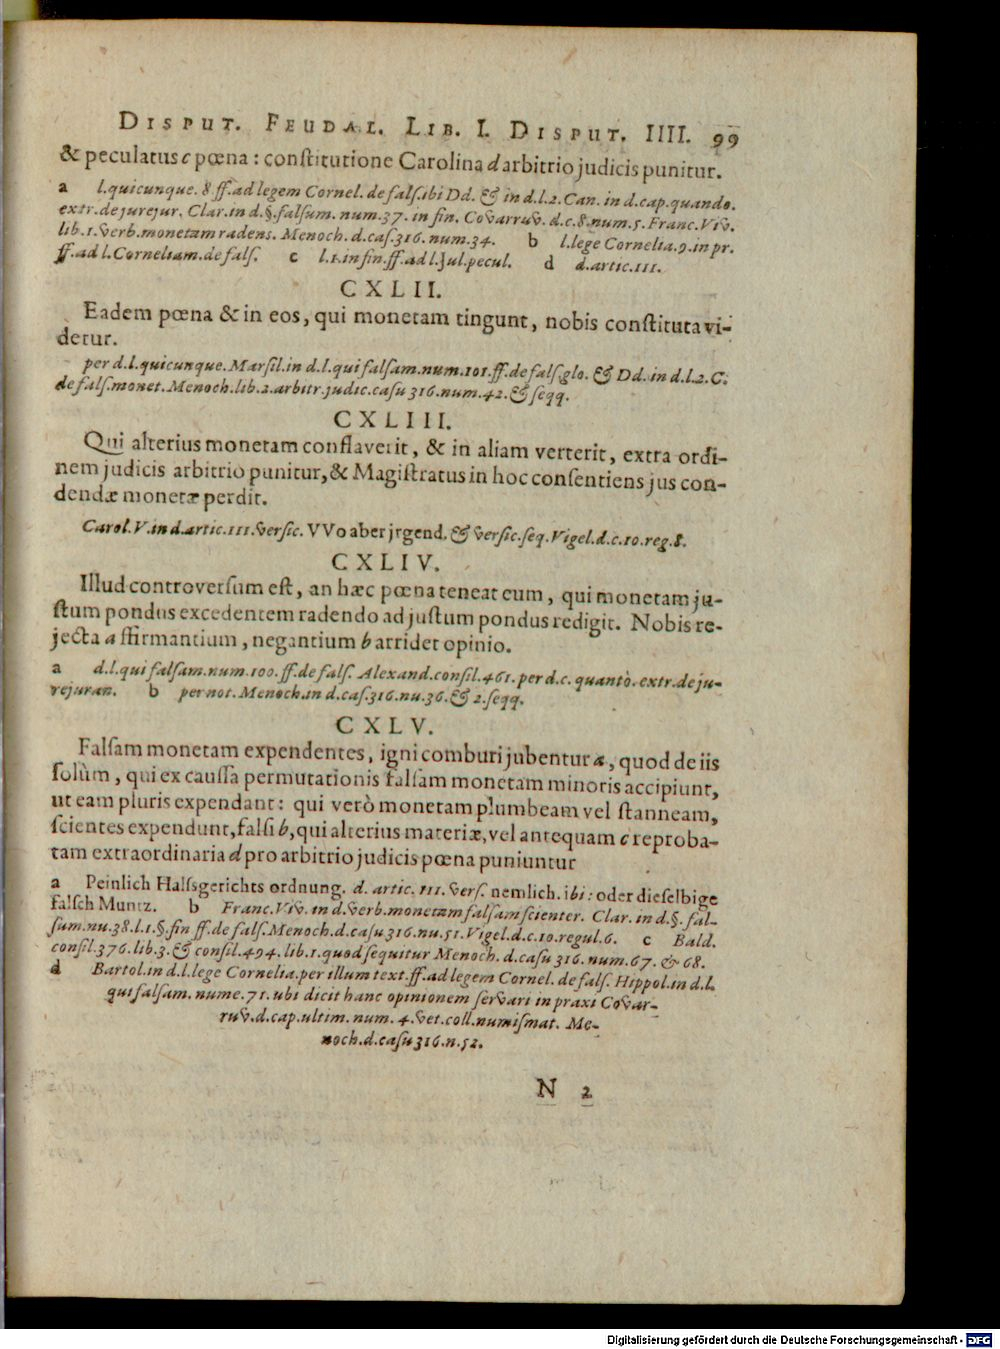 DISPUT. FEUDAL. LIB. I. DISPUT. IIII. 99
& peculatus c pœna: constitutione Carolina d arbitrio judicis punitur.
a l. quicunque. 8. ff. ad legem Cornel. de fals. ibi Dd. & in d.l.2. Can. in d. cap. quando.
extr. de jurejur. Clar. in d. §. falsum. num. 37. in fin. Covarruv. d.c. 8. num. 5. Franc. Viv.
lib. 1. verb. monetam radens. Menoch. d. cas. 316. num. 34. b l. lege Cornelia. 9. in pr.
ff. ad l. Corneliam. de fals. c l. 1. in fin. ff. ad l. Jul. pecul. d d. artic. 111.
CXLII.
Eadem pœna & in eos, qui monetam tingunt, nobis constituta vi-
detur.
per d.l. quicunque. Marsil. in d.l. qui falsam. num. 101. ff. de fals. glo. & Dd. in d.l.2. C.
de fals. monet. Menoch. lib. 2. arbitr. judic. casu 316. num. 42. & seqq.
CXLIII.
Qui alterius monetam conflaverit, & in aliam verterit, extra ordi-
nem judicis arbitrio punitur, & Magistratus in hoc consentiens jus con-
dendæ monetæ perdit.
Carol. V. in d. artic. 111. versic. VVo aber jrgend. & versic. seq. Vigel. d.c. 10. reg. 8.
CXLIV.
Illud controversum est, an hæc pœna teneat eum, qui monetam ju-
stum pondus excedentem radendo ad justum pondus redigit. Nobis re-
jecta a ffirmantium, negantium b arridet opinio.
a d.l. qui falsam. num. 100. ff. de fals. Alexand. consil. 461. per d.c. quantò. extr. de ju-
rejuran. b per not. Menoch. in d. cas. 316. nu. 36. & 2. seqq.
CXLV.
Falsam monetam expendentes, igni comburi jubentur a, quod de iis
solùm, qui ex caussa permutationis falsam monetam minoris accipiunt,
ut eam pluris expendant: qui verò monetam plumbeam vel stanneam,
scientes expendunt, falsi b, qui alterius materiæ, vel antequam c reproba-
tam extraordinaria d pro arbitrio judicis pœna puniuntur
a Peinlich Halsgerichts ordnung. d. artic. 111. vers. nemlich. ibi: oder dieselbige
falsch Muntz. b Franc. Viv. in d. verb. monetam falsam scienter. Clar. in d. §. fal-
sum. nu. 38. l. 1. §. fin ff. de fals. Menoch. d. casu 316. nu. 51. Vigel. d.c. 10. regul. 6. c Bald.
consil. 376. lib. 3. & consil. 494. lib. 1. quod sequitur Menoch. d. casu 316. num. 67. & 68.
d Bartol. in d.l. lege Cornelia. per illum text. ff. ad legem Cornel. de fals. Hippol. in d.l.
qui falsam. nume. 71. ubi dicit hanc opinionem servari in praxi Covar-
ruv. d. cap. ultim. num. 4. vet. coll. numismat. Me-
noch. d. casu 316. n. 52.
N 2
Digitalisierung gefördert durch die Deutsche Forschungsgemeinschaft - DFG